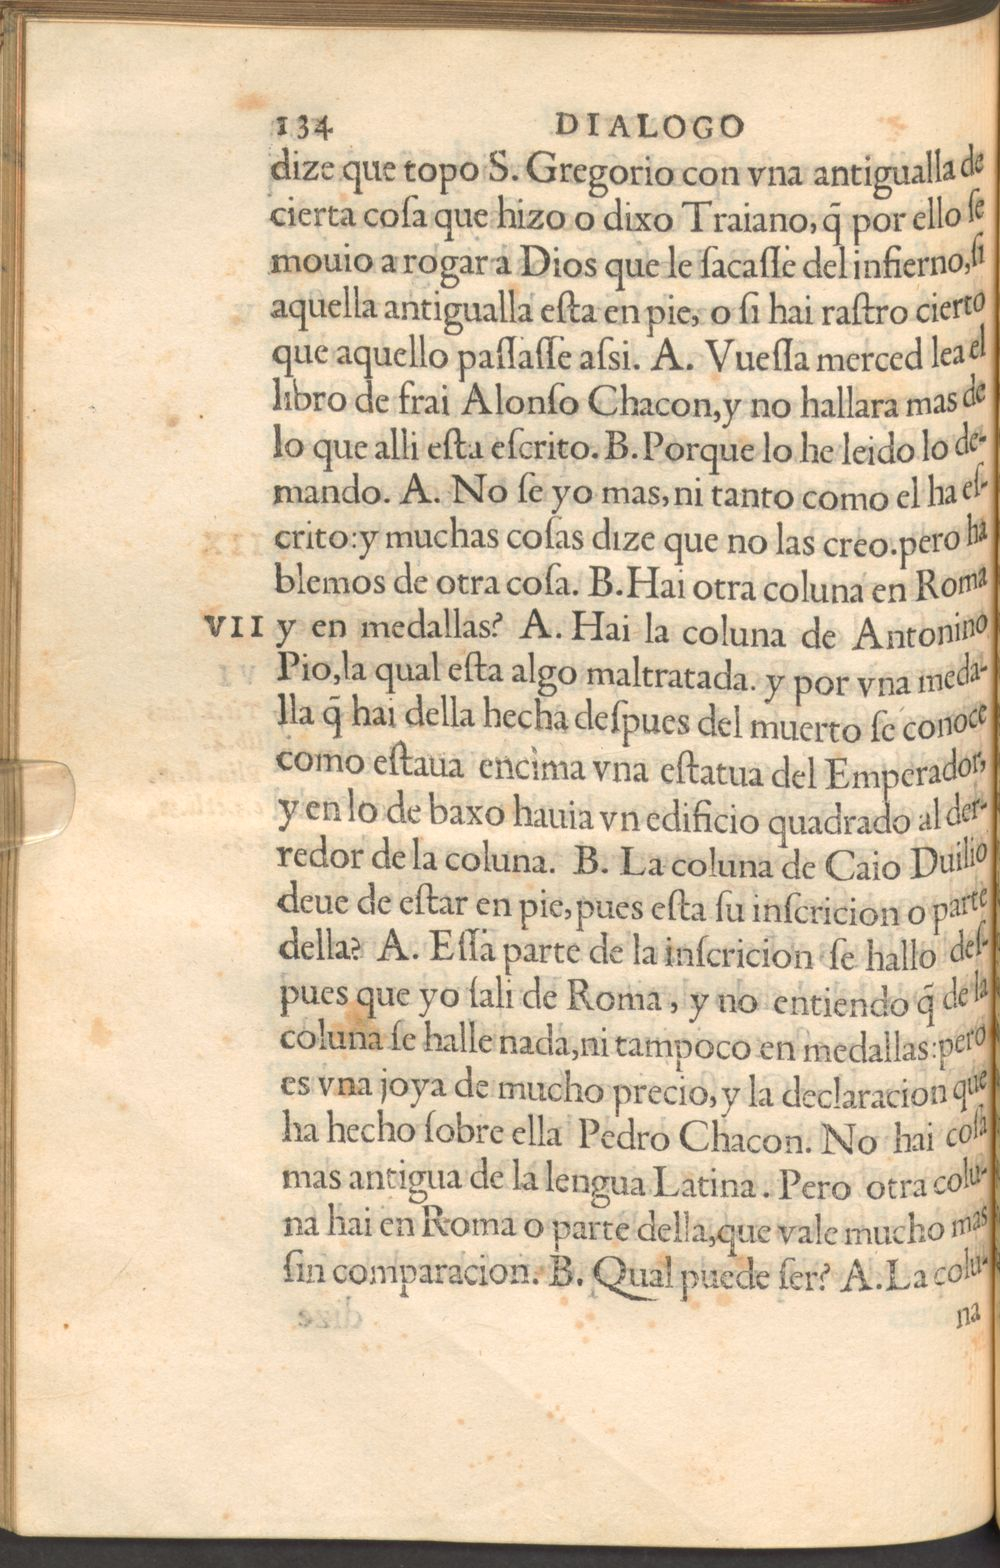 134 DIALOGO
dize que topo S. Gregorio con vna antigualla de
cierta coſa que hizo o dixo Traiano, q̃ por ello ſe
mouio a rogar a Dios que le ſacaſſe del infierno, ſi
aquella antigualla eſta en pie, o ſi hai raſtro cierto
que aquello paſſaſſe aſsi. A. Vueſſa merced lea el
libro de frai Alonſo Chacon, y no hallara mas de
lo que alli eſta eſcrito. B. Porque lo he leido lo de-
mando. A. No ſe yo mas, ni tanto como el ha eſ-
crito: y muchas coſas dize que no las creo. pero ha
blemos de otra coſa. B. Hai otra coluna en Roma
VII y en medallas? A. Hai la coluna de Antonino
Pio, la qual eſta algo maltratada. y por vna meda-
lla q̃ hai della hecha deſpues del muerto ſe conoce
como eſtaua encima vna eſtatua del Emperador,
y en lo de baxo hauia vn edificio quadrado al der-
redor de la coluna. B. La coluna de Caio Duilio
deue de eſtar en pie, pues eſta ſu inſcricion o parte
della? A. Eſſa parte de la inſcricion ſe hallo deſ-
pues que yo ſali de Roma, y no entiendo q̃ de la
coluna ſe halle nada, ni tampoco en medallas: pero
es vna joya de mucho precio, y la declaracion que
ha hecho ſobre ella Pedro Chacon. No hai coſa
mas antigua de la lengua Latina. Pero otra colu-
na hai en Roma o parte della, que vale mucho mas
ſin comparacion. B. Qual puede ſer? A. La colu-
na